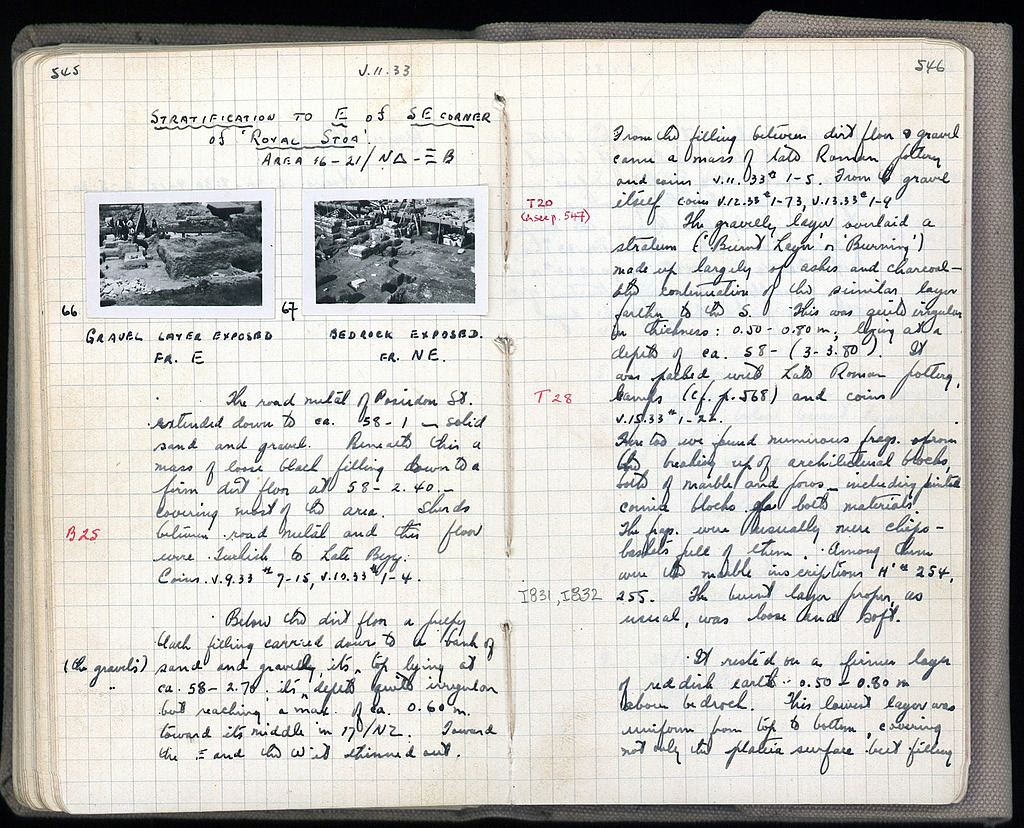 545
V.11.33
STRATIFICATION TO E OF SE CORNER
OF 'ROYAL STOA'
AREA 16-21/ΝΔ-ΞΒ
66
67
GRAVEL LAYER EXPOSED
FR. E
BEDROCK EXPOSED.
FR. NE.
The road metal of Poseidon St.
extended down to ca. 58-1 – solid
sand and gravel. Beneath this a
mass of loose black filling down to a
firm dirt floor at 58-2.40 –
covering most of the area. Sherds
B25
between road metal and this floor
were Turkish to Late Byz.
Coins V.9.33 #7-15, V.10.33 #1-4.
Below the dirt floor a
black filling carried down to a bank of
(the gravel's)
sand and gravelly, its top lying at
"
ca. 58-2.70, its depth quite irregular
but reaching a max. of ca. 0.60 m.
toward its middle in 17/ΝΖ. Toward
the E and the W it thinned out.
546
From the filling between dirt floor & gravel
came a mass of late Roman pottery
and coins V.11.33 #1-5. From the gravel
T20
(see p. 547)
itself coins V.12.33 #1-73, V.13.33 #1-9
The gravelly layer overlaid a
stratum ('Burnt Layer' or 'Burning')
made up largely of ashes and charcoal –
the continuation of the similar layer
farther to the S. This was quite irregular
in thickness: 0.50-0.80 m, lying at a
depth of ca. 58-(3-3.80). It
was packed with Late Roman pottery,
T28
lamps (cf. p. 568) and coins
V.15.33 #1-22.
Here too we found numerous frags. from
the breaking up of architectural blocks,
both of marble and poros – including painted
cornice blocks of both materials.
The frags. were usually mere chips –
baskets full of them. Among them
were the marble inscriptions H' # 254,
I831, I832
255. The burnt layer proper, as
usual, was loose and soft.
It rested on a firmer layer
of reddish earth 0.50-0.80 m
above bedrock. This lowest layer was
uniform from top to bottom, covering
not only the plateia surface but filling